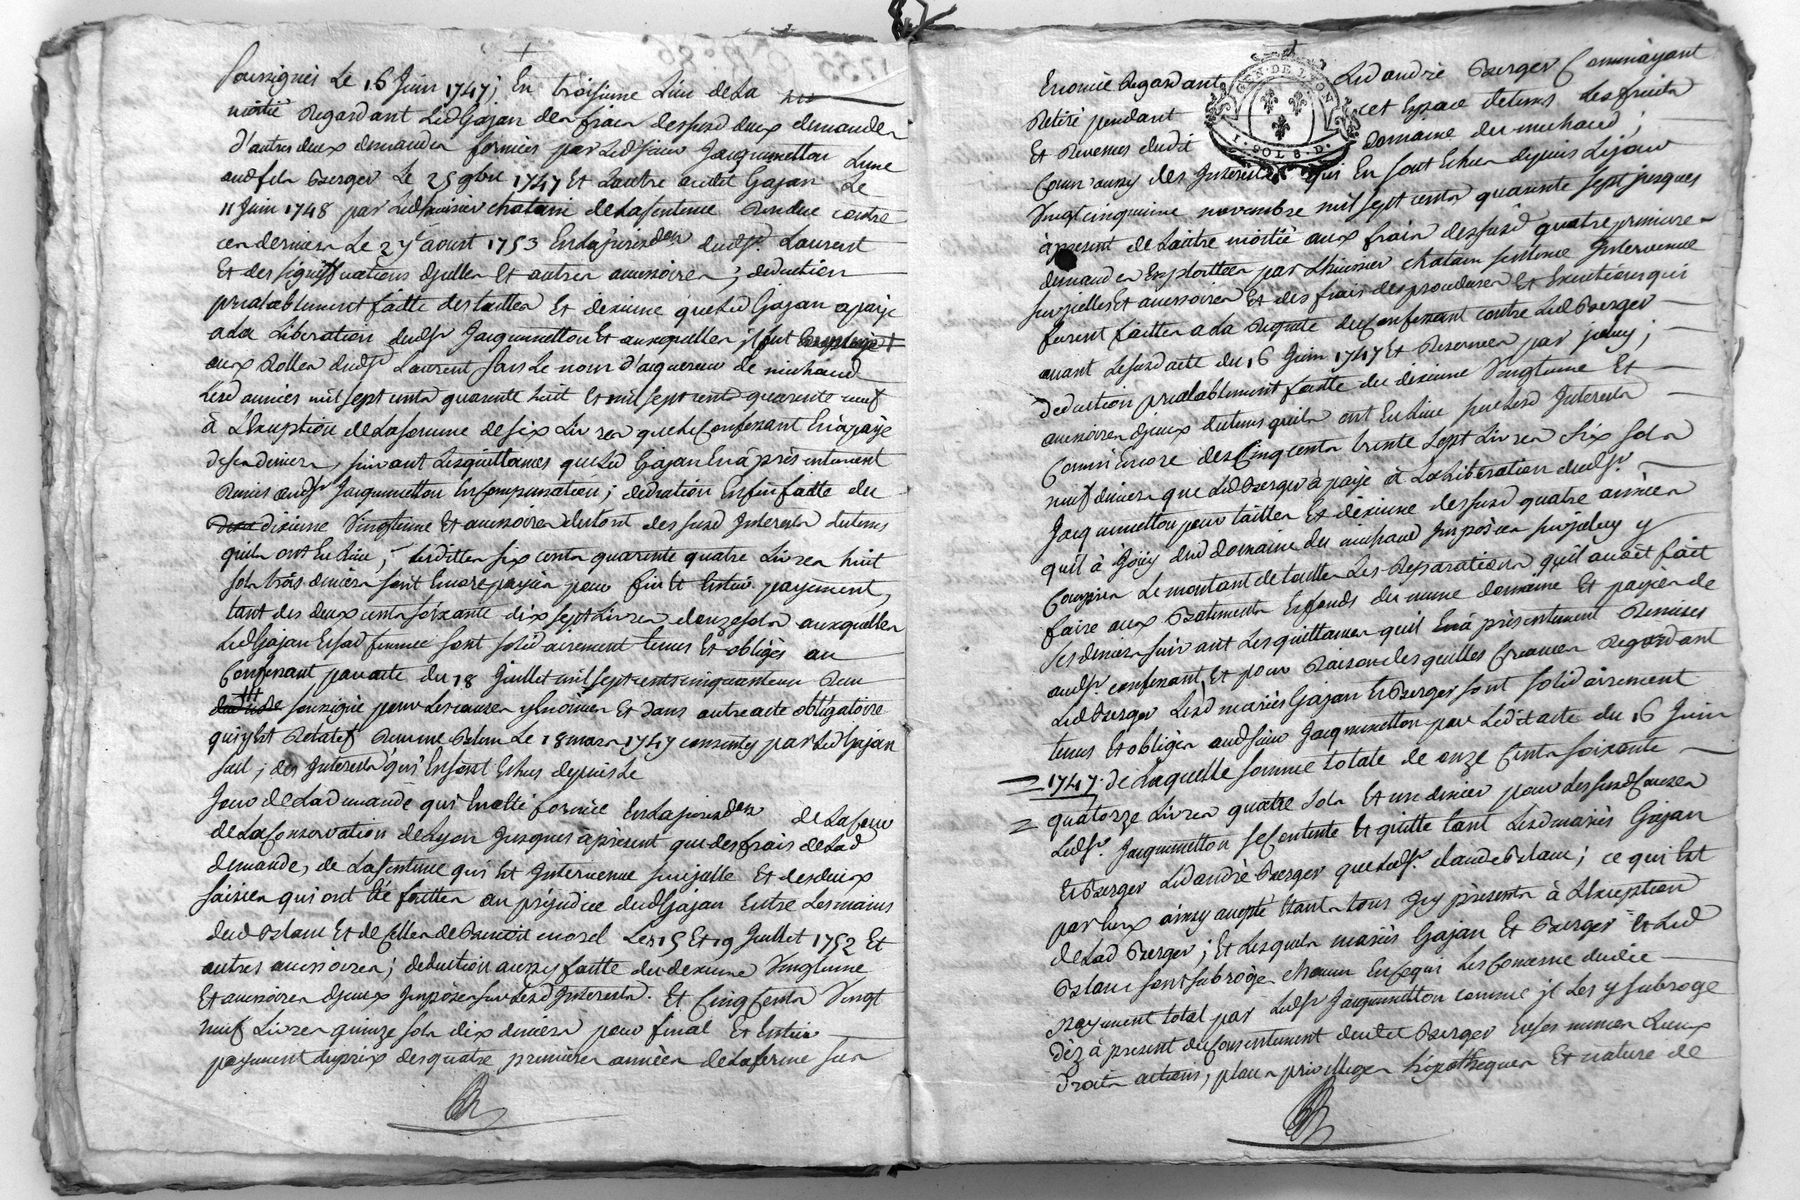 soussignés Le 16 Juin 1747; En troisieme Lieu de La
moitié Regardant Led Gajan des frais desfusd deux demandes
d'autres deux demandes formées par Led sieur Jacquemetton Lune
aud feu Berger Le 25 9bre 1747 Et Lautre audit Gajan Le
11 Juin 1748 par Led huissier chatain de La sentence Rendue contre
ces derniers Le 27e aoust 1753 En La jurisdon dudsr Laurent
Et des significations d'jcelles Et autres accessoires; deduction
prealablement faitte des tailles Et dixieme que Led Gajan a payé
a La Liberation dudsr Jacquemetton Et auxquelles jl fut
aux Rolles dudsr Laurent sous Le nom d'acquereur de michaud
Lesd années mil sept cents quarante huit Et mil sept cents quarante neuf
à L'Exception de La somme de six Livres que Le Confessant En à payé
de ses deniers, suivant Les quittances que Led Gajan En à présentement
Remis audsr Jacquemetton En Compensation; deduction Enfin faitte du
dixieme Vingtieme Et accessoires du tout des susd Interests du tems
quils ont Eu Lieu; Lesdittes six cents quarante quatre Livres huit
sols trois deniers sont Encore payées pour fin Et Entier payement
tant des deux cents soixante dix sept Livres douze sols auxquelles
Led Gajan Et sad femme sont solidairement tenus Et obligés au
Confessant par acte du 18 Juillet mil sept cents cinquante un Reçu
soussigné pour Les causes y Enoncées Et dans autre acte obligatoire
qui y Est Relaté Reçu me Relave Le 18 mars 1747 consenty par Led Gajan
seul; des Interests qui En sont Echus depuis Le
Jour de La demande qui En a Eté formée En La jurisdon de La Cour
de La Conservation de Lyon Jusques à présent que des frais de Lad
demande, de La sentence qui Est Intervenue sur jcelle Et des deux
saisies qui ont Eté faittes au préjudice dud Gajan Entre Les mains
dud Relave Et de Celles de Benoit morel Les 15 Et 19 Juillet 1752 Et
autres accessoires; deduction aussy faitte du dixieme Vingtieme
Et accessoires d'jceux Imposés sur Lesd Interests. Et Cinq Cents Vingt
neuf Livres quinze sols dix deniers pour final Et Entier
payement du prix des quatre premieres années de La ferme sus
Enoncée Regardant Led andré Berger Comm'ayant
Retiré pendant cet Espace de tems Les fruits
Et Revenus dudit Domaine du michaud;
Comm'aussy des Interests qui En sont Echus depuis Le jour
Vingt cinquieme novembre mil sept cents quarante sept jusques
à present de Lautre moitié aux frais des susd quatre premieres
demandes Exploittées par L'huissier chatain sentence Intervenue
sur jcelles Et accessoires Et des frais des procedures Et Executions qui
furent faittes a La Requete du Confessant contre Led Berger
avant Le susd acte du 16 Juin 1747 Et Reservées par jceluy;
deduction prealablement faitte du dixieme Vingtieme Et
accessoires d'jceux du tems quils ont Eu Lieu sur Lesd Interests
Comm'Encore des Cinq cents trente sept Livres six sols
neuf deniers que Led Berger à payé à La Liberation dudsr
Jacquemetton pour tailles Et dixieme des susd quatre années
qu'il à Jouy dud domaine du michaud Imposées sur jceluy y
Compris Le montant de touttes Les Reparations qu'il auoit fait
faire aux Batiments En fonds du meme domaine Et payées de
ses deniers suivant Les quittances qu'il En à présentement Remises
audsr confessant, Et pour Raison des quelles Creances Regardant
Led Berger Lesd mariés Gajan Et Berger sont solidairement
tenus Et obligés aud sieur Jacquemetton par Ledit acte du 16 Juin
1747. de Laquelle somme totale de onze Cents soixante
quatorze Livres quatre sols Et un denier pour des susd Causes
Ledsr Jacquemetton se Contente Et quitte tant Lesd mariés Gajan
Et Berger Led andré Berger que Ledsr claude Relave; ce qui Est
par Eux ainsy accepté Etants tous Jcy présents à L'Exception
de Lad Berger; Et Lesquels mariés Gajan Et Berger Et Led
Relave sont subrogés chacun En ce qui Les Concerne dudit
payement total par Ledsr Jacquemetton comme jl Les y subroge
dèz à present du Consentement dudit Berger En ses memes Lieux
droits actions, places privilleges hipotheques Et nature de
GEN. DE LYON
1. SOL 8. D.